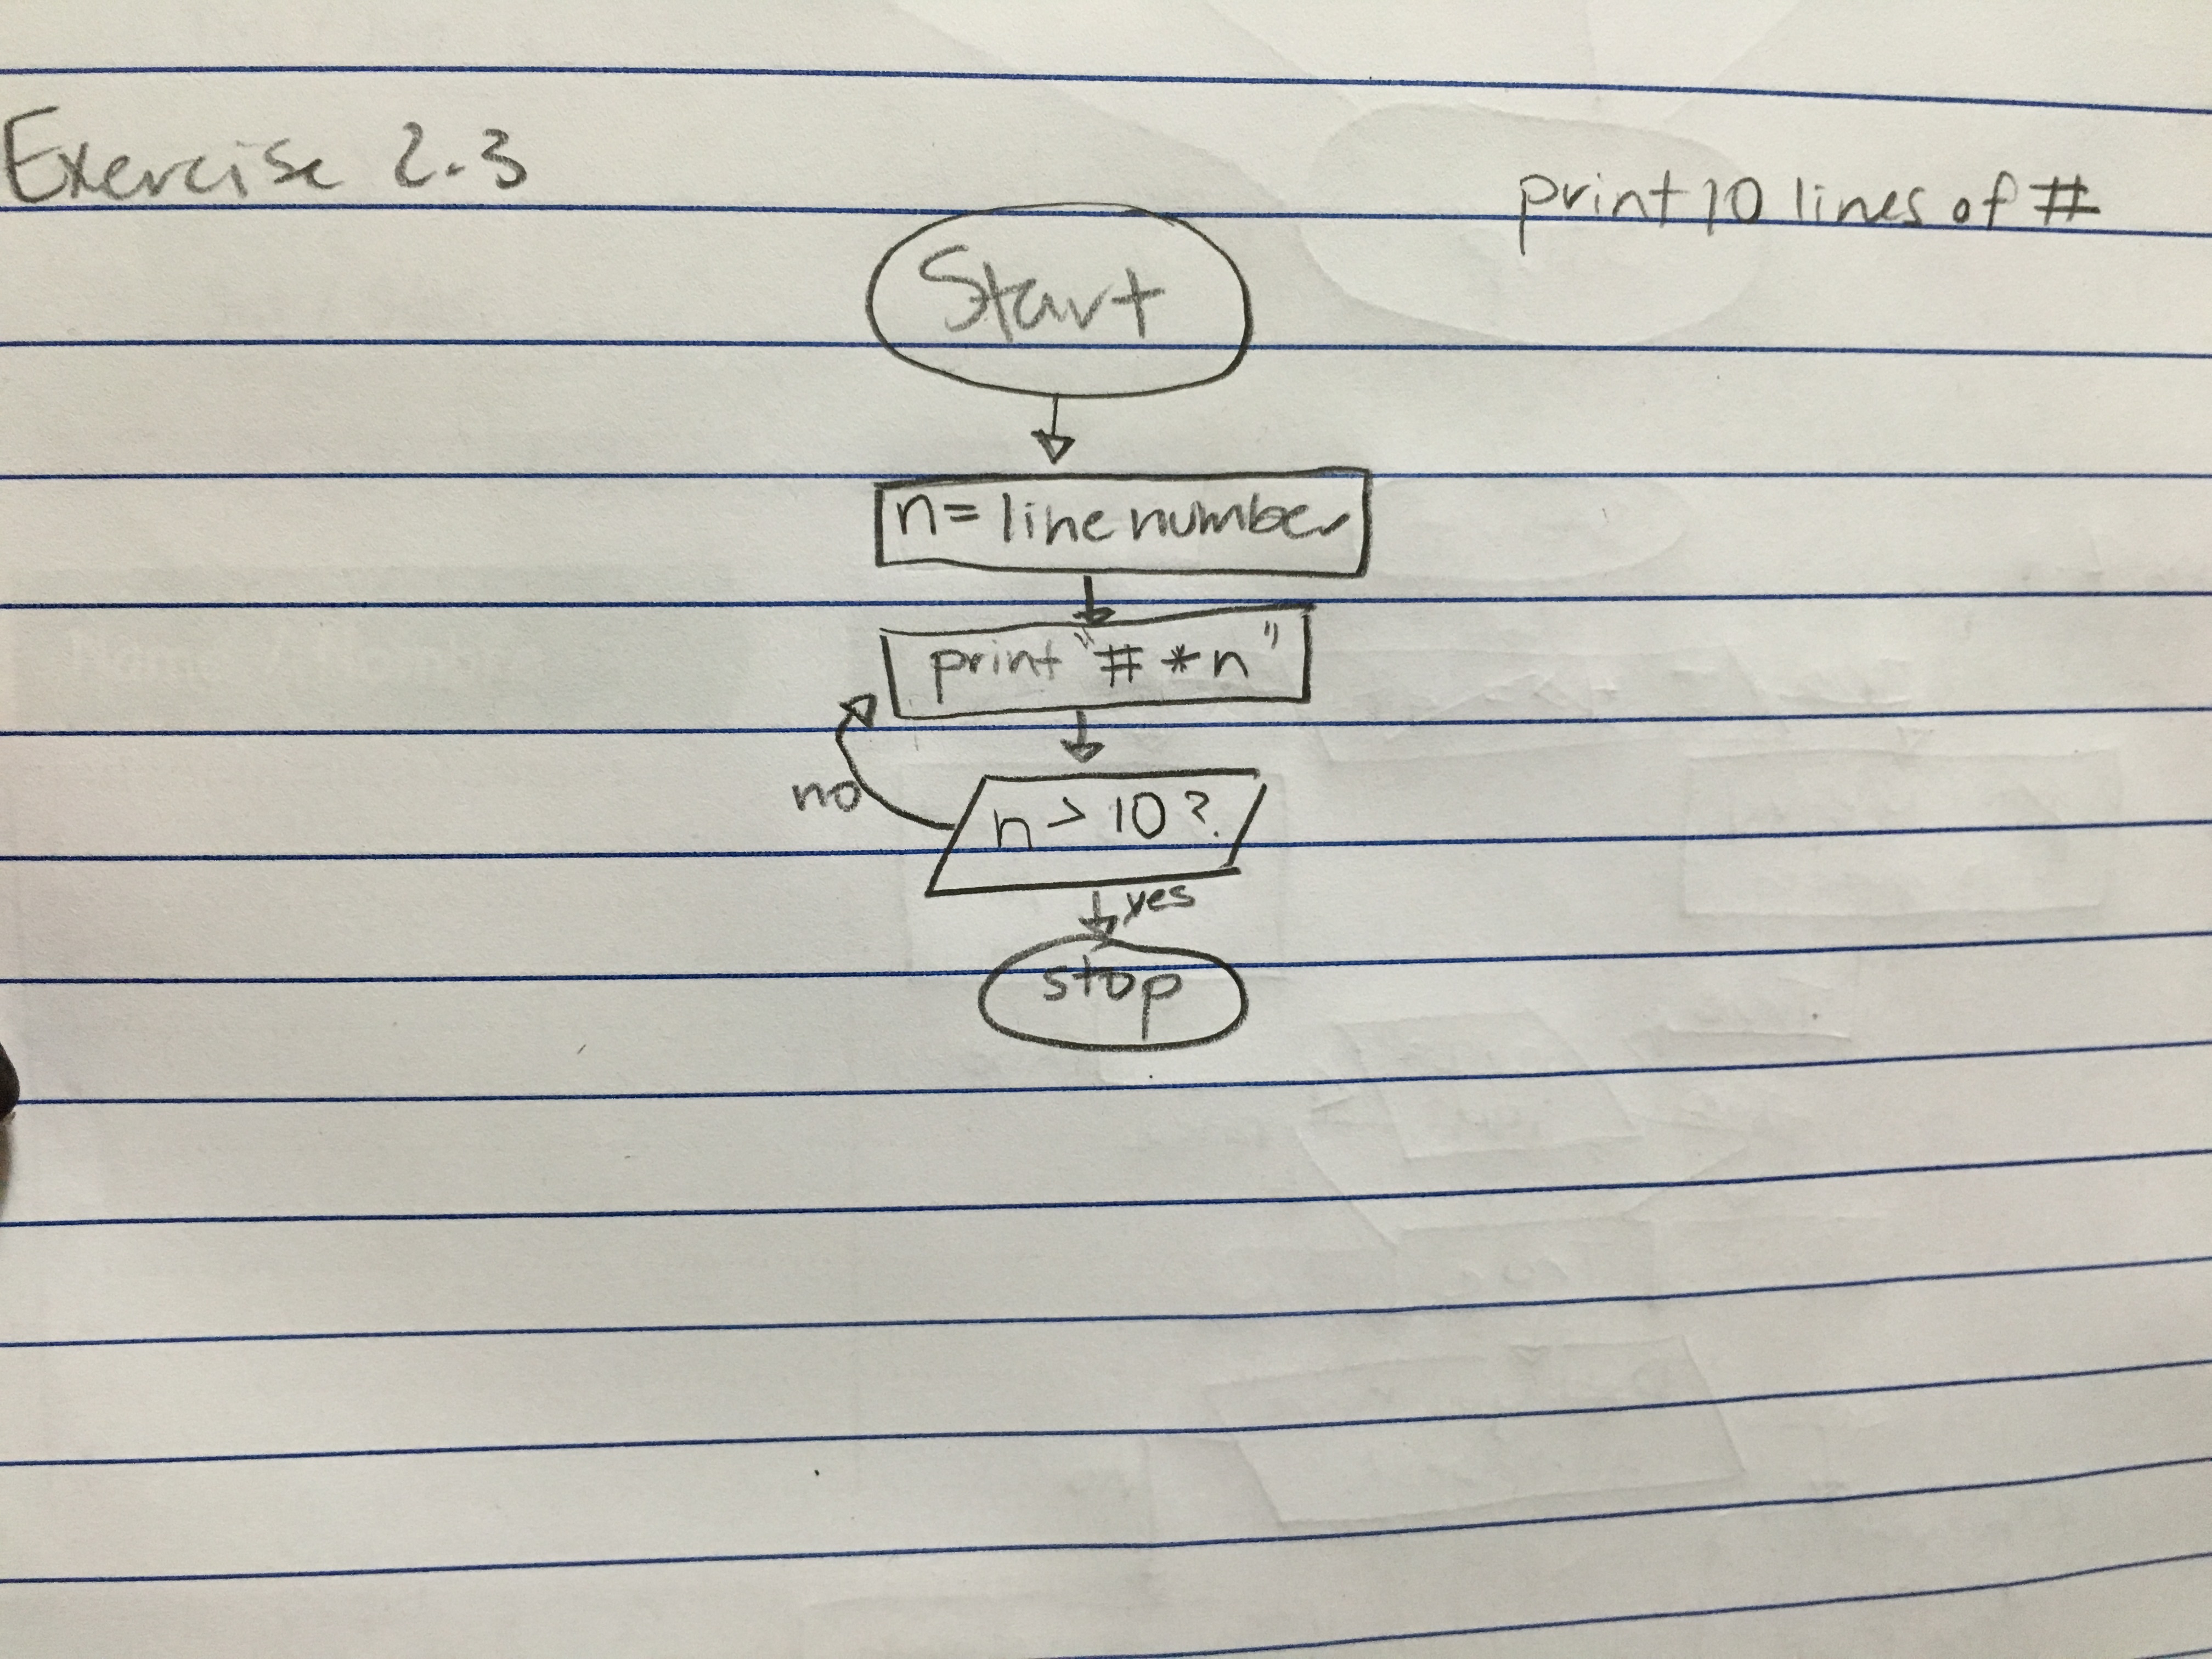 Exercise 2.3
print 10 lines of #
Start
n = line number
print "# * n"
no
n > 10 ?
yes
stop